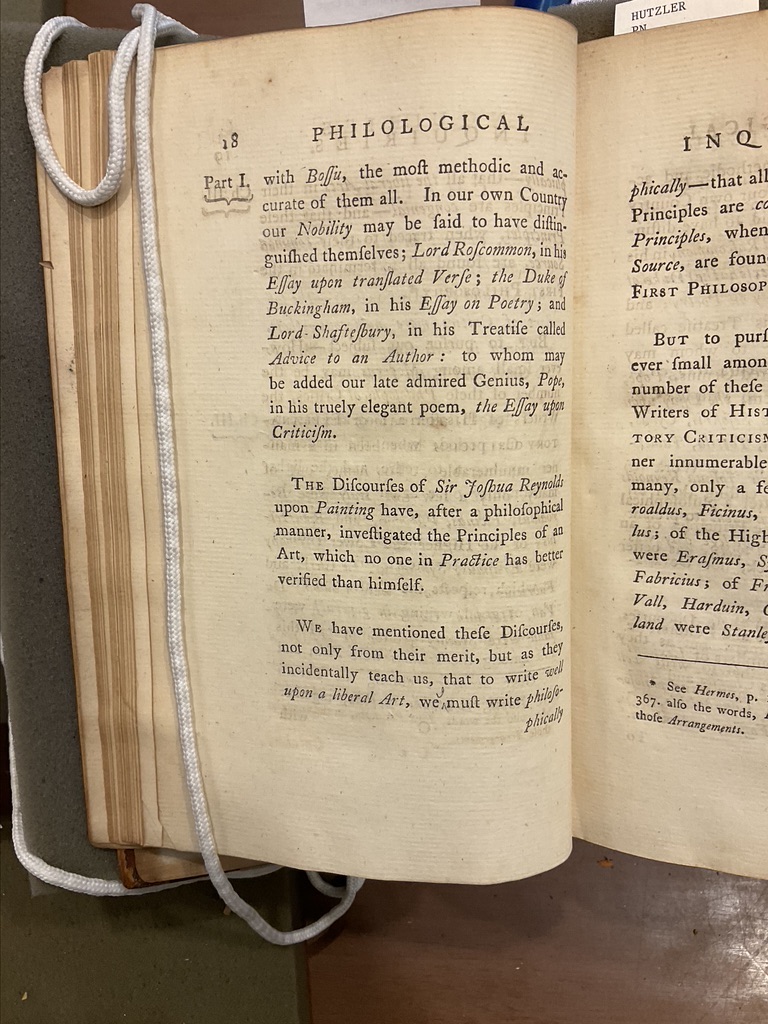 HUTZLER
PN
18
PHILOLOGICAL
Part I.
with Boſſu, the moſt methodic and ac-
curate of them all. In our own Country
our Nobility may be ſaid to have diſtin-
guiſhed themſelves; Lord Roſcommon, in his
Eſſay upon tranſlated Verſe; the Duke of
Buckingham, in his Eſſay on Poetry; and
Lord Shafteſbury, in his Treatiſe called
Advice to an Author: to whom may
be added our late admired Genius, Pope,
in his truely elegant poem, the Eſſay upon
Criticiſm.
THE Diſcourſes of Sir Joſhua Reynolds
upon Painting have, after a philoſophical
manner, inveſtigated the Principles of an
Art, which no one in Practice has better
verified than himſelf.
WE have mentioned theſe Diſcourſes,
not only from their merit, but as they
incidentally teach us, that to write well
upon a liberal Art, we muſt write philoſo-
phically
INQ
phically—that all
Principles are
Principles, when
Source, are foun
FIRST PHILOSOP
BUT to purſ
ever ſmall amon
number of theſe
Writers of HIST
TORY CRITICISM
ner innumerable
many, only a fe
roaldus, Ficinus,
lus; of the High
were Eraſmus, S
Fabricius; of Fr
Vall, Harduin,
land were Stanley
* See Hermes, p.
367. alſo the words,
thoſe Arrangements.